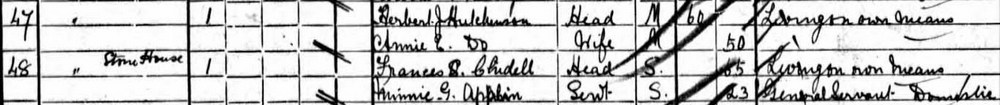 47 " 1 Herbert J Hutchinson Head M 60 Living on own means
Annie E. Do Wife M 50
48 " Stone House 1 Frances S. Chidell Head S. 65 Living on own means
Minnie G. Applin Servt S. 23 General Servant Domestic